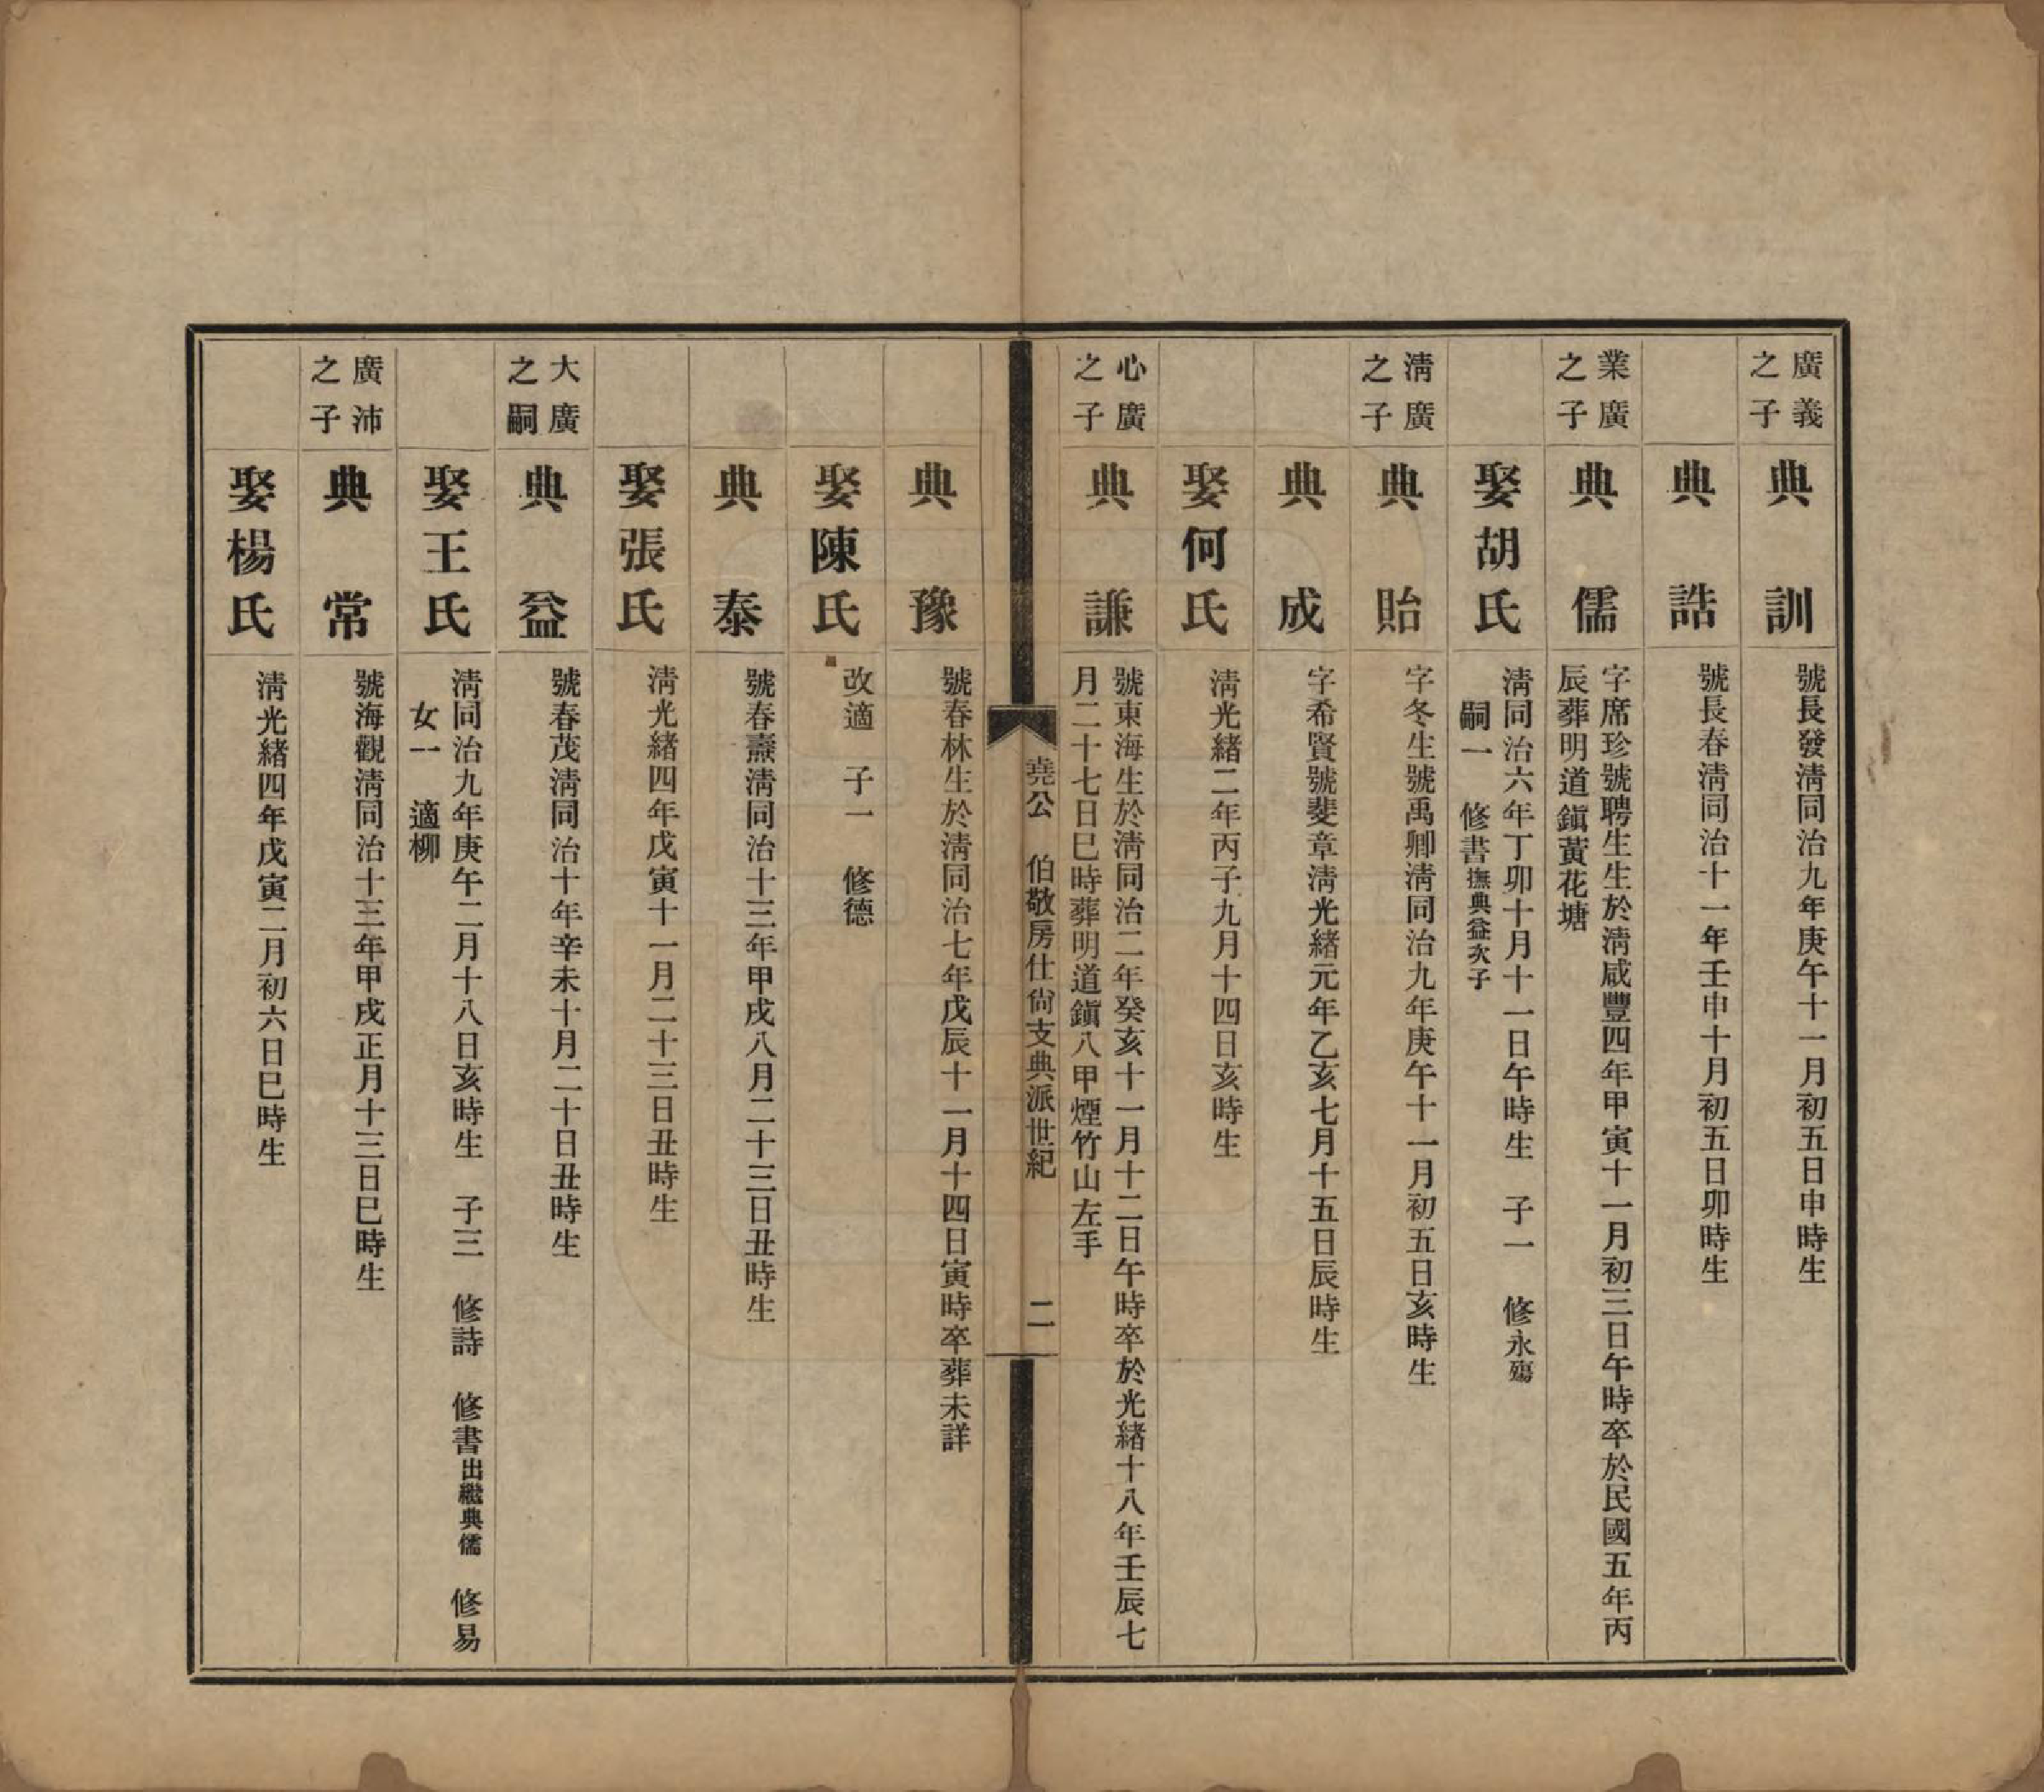 廣義
之子
典訓
號長發淸同治九年庚午十一月初五日申時生
典誥
號長春淸同治十一年壬申十月初五日卯時生
業廣
之子
典儒
字席珍號聘生生於淸咸豐四年甲寅十一月初三日午時卒於民國五年丙
辰葬明道鎭黃花塘
娶胡氏
淸同治六年丁卯十月十一日午時生　子一　修永殤
嗣一　修書撫典益次子
淸廣
之子
典貽
字冬生號禹卿淸同治九年庚午十一月初五日亥時生
典成
字希賢號斐章淸光緒元年乙亥七月十五日辰時生
娶何氏
淸光緒二年丙子九月十四日亥時生
心廣
之子
典謙
號東海生於淸同治二年癸亥十一月十二日午時卒於光緒十八年壬辰七
月二十七日巳時葬明道鎭八甲煙竹山左手
堯公　伯敬房仕尙支典派世紀　二
典豫
號春林生於淸同治七年戊辰十一月十四日寅時卒葬未詳
娶陳氏
改適　子一　修德
典泰
號春燾淸同治十三年甲戌八月二十三日丑時生
娶張氏
淸光緒四年戊寅十一月二十三日丑時生
大廣
之嗣
典益
號春茂淸同治十年辛未十月二十日丑時生
娶王氏
淸同治九年庚午二月十八日亥時生　子三　修詩　修書出繼典儒　修易
女一　適柳
廣沛
之子
典常
號海觀淸同治十三年甲戌正月十三日巳時生
娶楊氏
淸光緒四年戊寅二月初六日巳時生